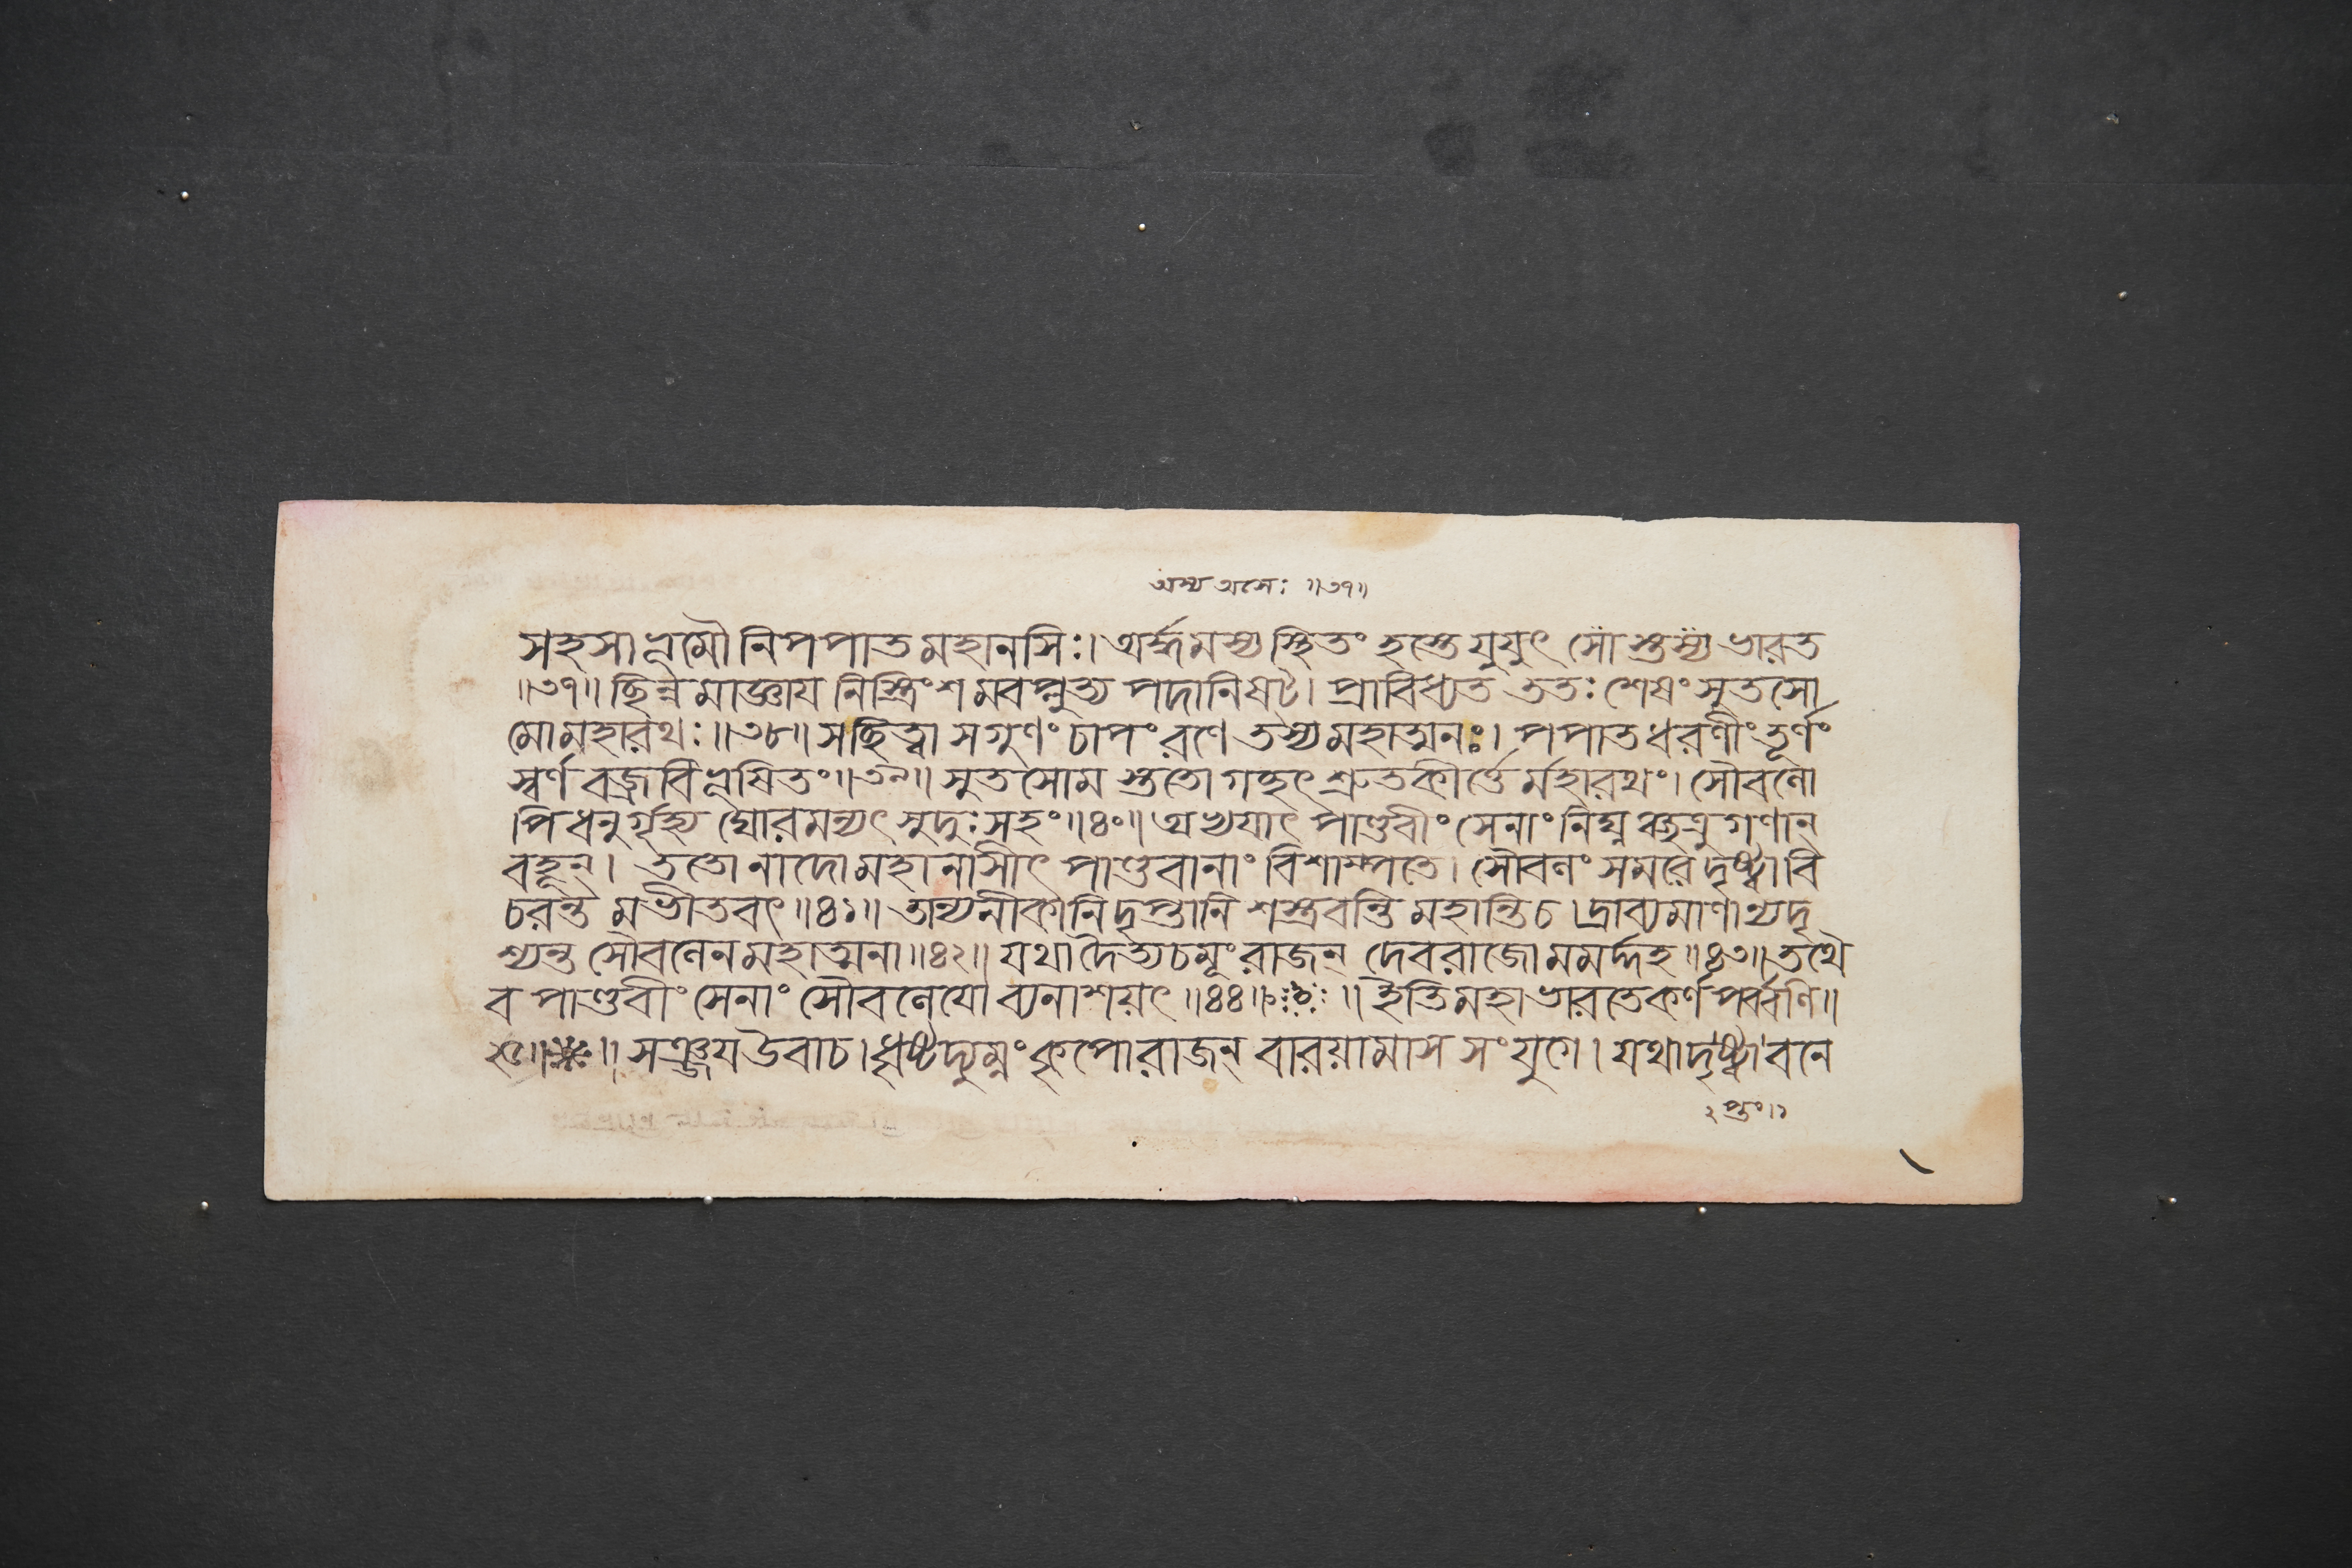 অস্য অসেঃ ॥৩৭॥
সহসা ভূমৌ নিপপাত মহানসিঃ। অর্দ্ধমস্য স্থিতং হস্তে যুযুৎসোস্তস্য ভারত
॥৩৭॥ ছিন্নমাজ্ঞায নিস্ত্রিংশমবপ্লুত্য পদানিষট্। প্রাবিধ্যত ততঃ শেষং সুতসো
মো মহারথঃ॥৩৮॥ স চ্ছিত্বা সগুণং চাপং রণে তস্য মহাত্মনঃ। পপাত ধরণীং তূর্ণং
স্বর্ণবজ্রবিভূষিতং॥৩৯॥ সুতসোমস্ততো গচ্ছৎ শ্রুতকীর্ত্তের্মহারথং। সৌবলো
পি ধনুর্গৃহ্য ঘোরমন্যৎ সুদুঃসহং॥৪০॥ অভ্যযাৎ পাণ্ডবীং সেনাং নিঘ্নঞ্ছত্রুগণান্
বহূন্। ততো নাদো মহানাসীৎ পাণ্ডবানাং বিশাম্পতে। সৌবলং সমরে দৃষ্ট্বা বি
চরন্তমভীতবৎ॥৪১॥ তান্যনীকানি দৃপ্তানি শস্ত্রবন্তি মহান্তি চ। দ্রাব্যমাণান্যদৃ
শ্যন্ত সৌবলেন মহাত্মনা॥৪২॥ যথা দৈত্যচমূং রাজন্ দেবরাজো মমর্দ্দহ॥৪৩॥ তথৈ
ব পাণ্ডবীং সেনাং সৌবলেযো ব্যনাশয়ৎ॥৪৪॥ ॥ ইতি মহাভারতে কর্ণপর্ব্বণি॥
২৫॥ ॥ সঞ্জয উবাচ। ধৃষ্টদ্যুম্নং কৃপো রাজন্ বারয়ামাস সংযুগে। যথা দৃষ্ট্বা বনে